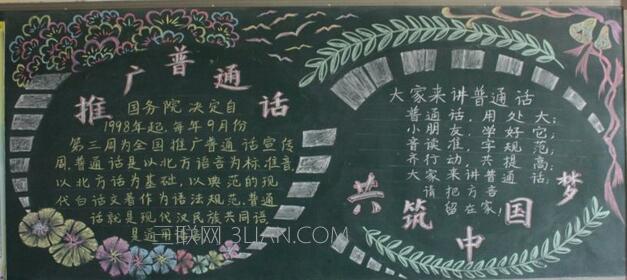 推广普通话
国务院决定自
1998年起,每年9月份
第三周为全国推广普通话宣传
周,普通话是以北方语音为标准音
以北方话为基础,以典范的现
代白话文著作为语法规范,普通
话就是现代汉民族共同语
是通用
大家来讲普通话
普通话,用处大;
小朋友,学好它;
音读准,字规范;
齐行动,共提高;
大家来讲普通话;
请把方言
留在家!
共筑中国梦
一联网 3LIAN.COM